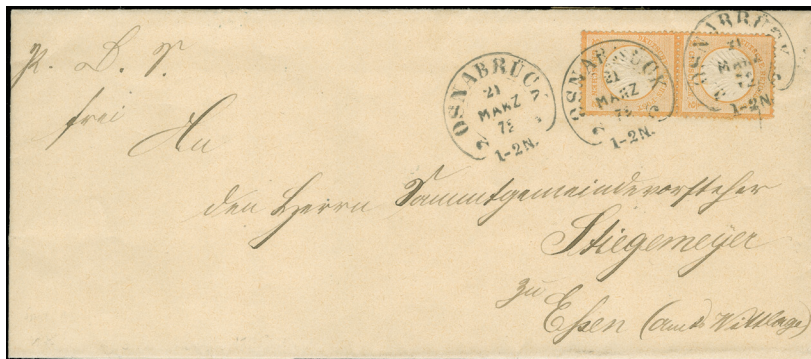 P. D. S.
frei
OSNABRÜCK 2
21
MÄRZ
72
1-2N.
OSNABRÜCK 2
21
MÄRZ
72
1-2N.
OSNABRÜCK 2
21
MÄRZ
72
1-2N.
An
den Herrn Sammtgemeindevorsteher
Stiegemeyer
zu
Essen (Amts Wittlage)